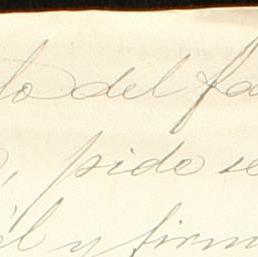 lo del fa
, pide se
él y firm